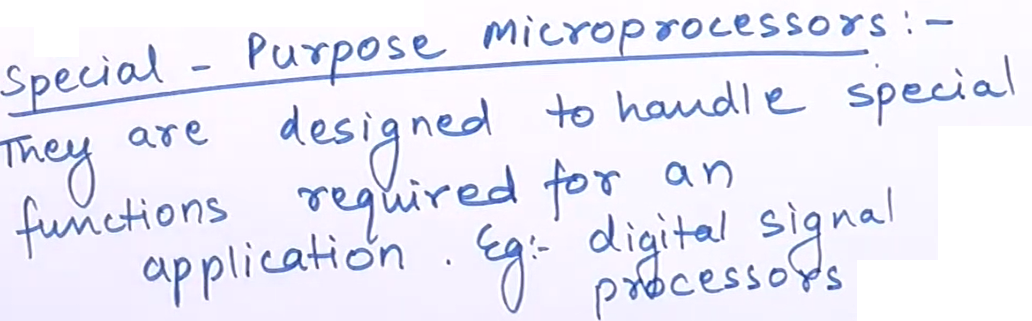 Special - Purpose Microprocessors :-
They are designed to handle special
functions required for an
application. Eg:- digital signal
processors